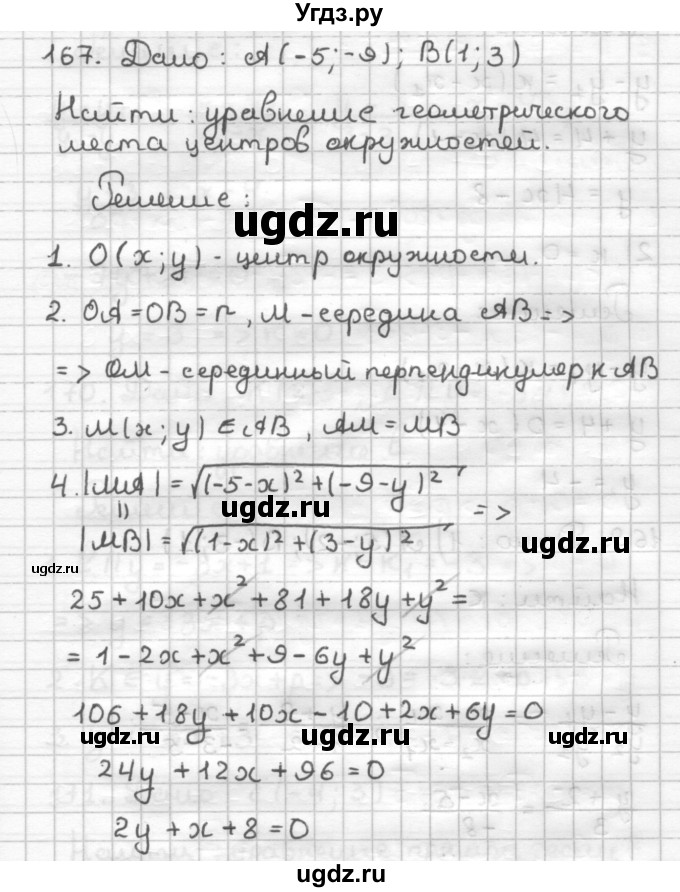 Угдз.ру
167. Дано: A(-5;-9); B(1;3)
Найти: уравнение геометрического
места центров окружностей.
Решение:
ugdz.ru
1. O(x;y) - центр окружности.
2. OA=OB=r, M - середина AB =>
=> OM - серединный перпендикуляр к AB
3. M(x;y) ∈ AB, AM = MB
4. |MA| = √((-5-x)² + (-9-y)²
ugdz.ru
|| =>
|MB| = √((1-x)² + (3-y)²
ugdz.ru ugdz.ru
25 + 10x + x² + 81 + 18y + y² =
= 1 - 2x + x² + 9 - 6y + y²
106 + 18y + 10x - 10 + 2x + 6y = 0
ugdz.ru ugdz.ru ugdz.ru
24y + 12x + 96 = 0
2y + x + 8 = 0